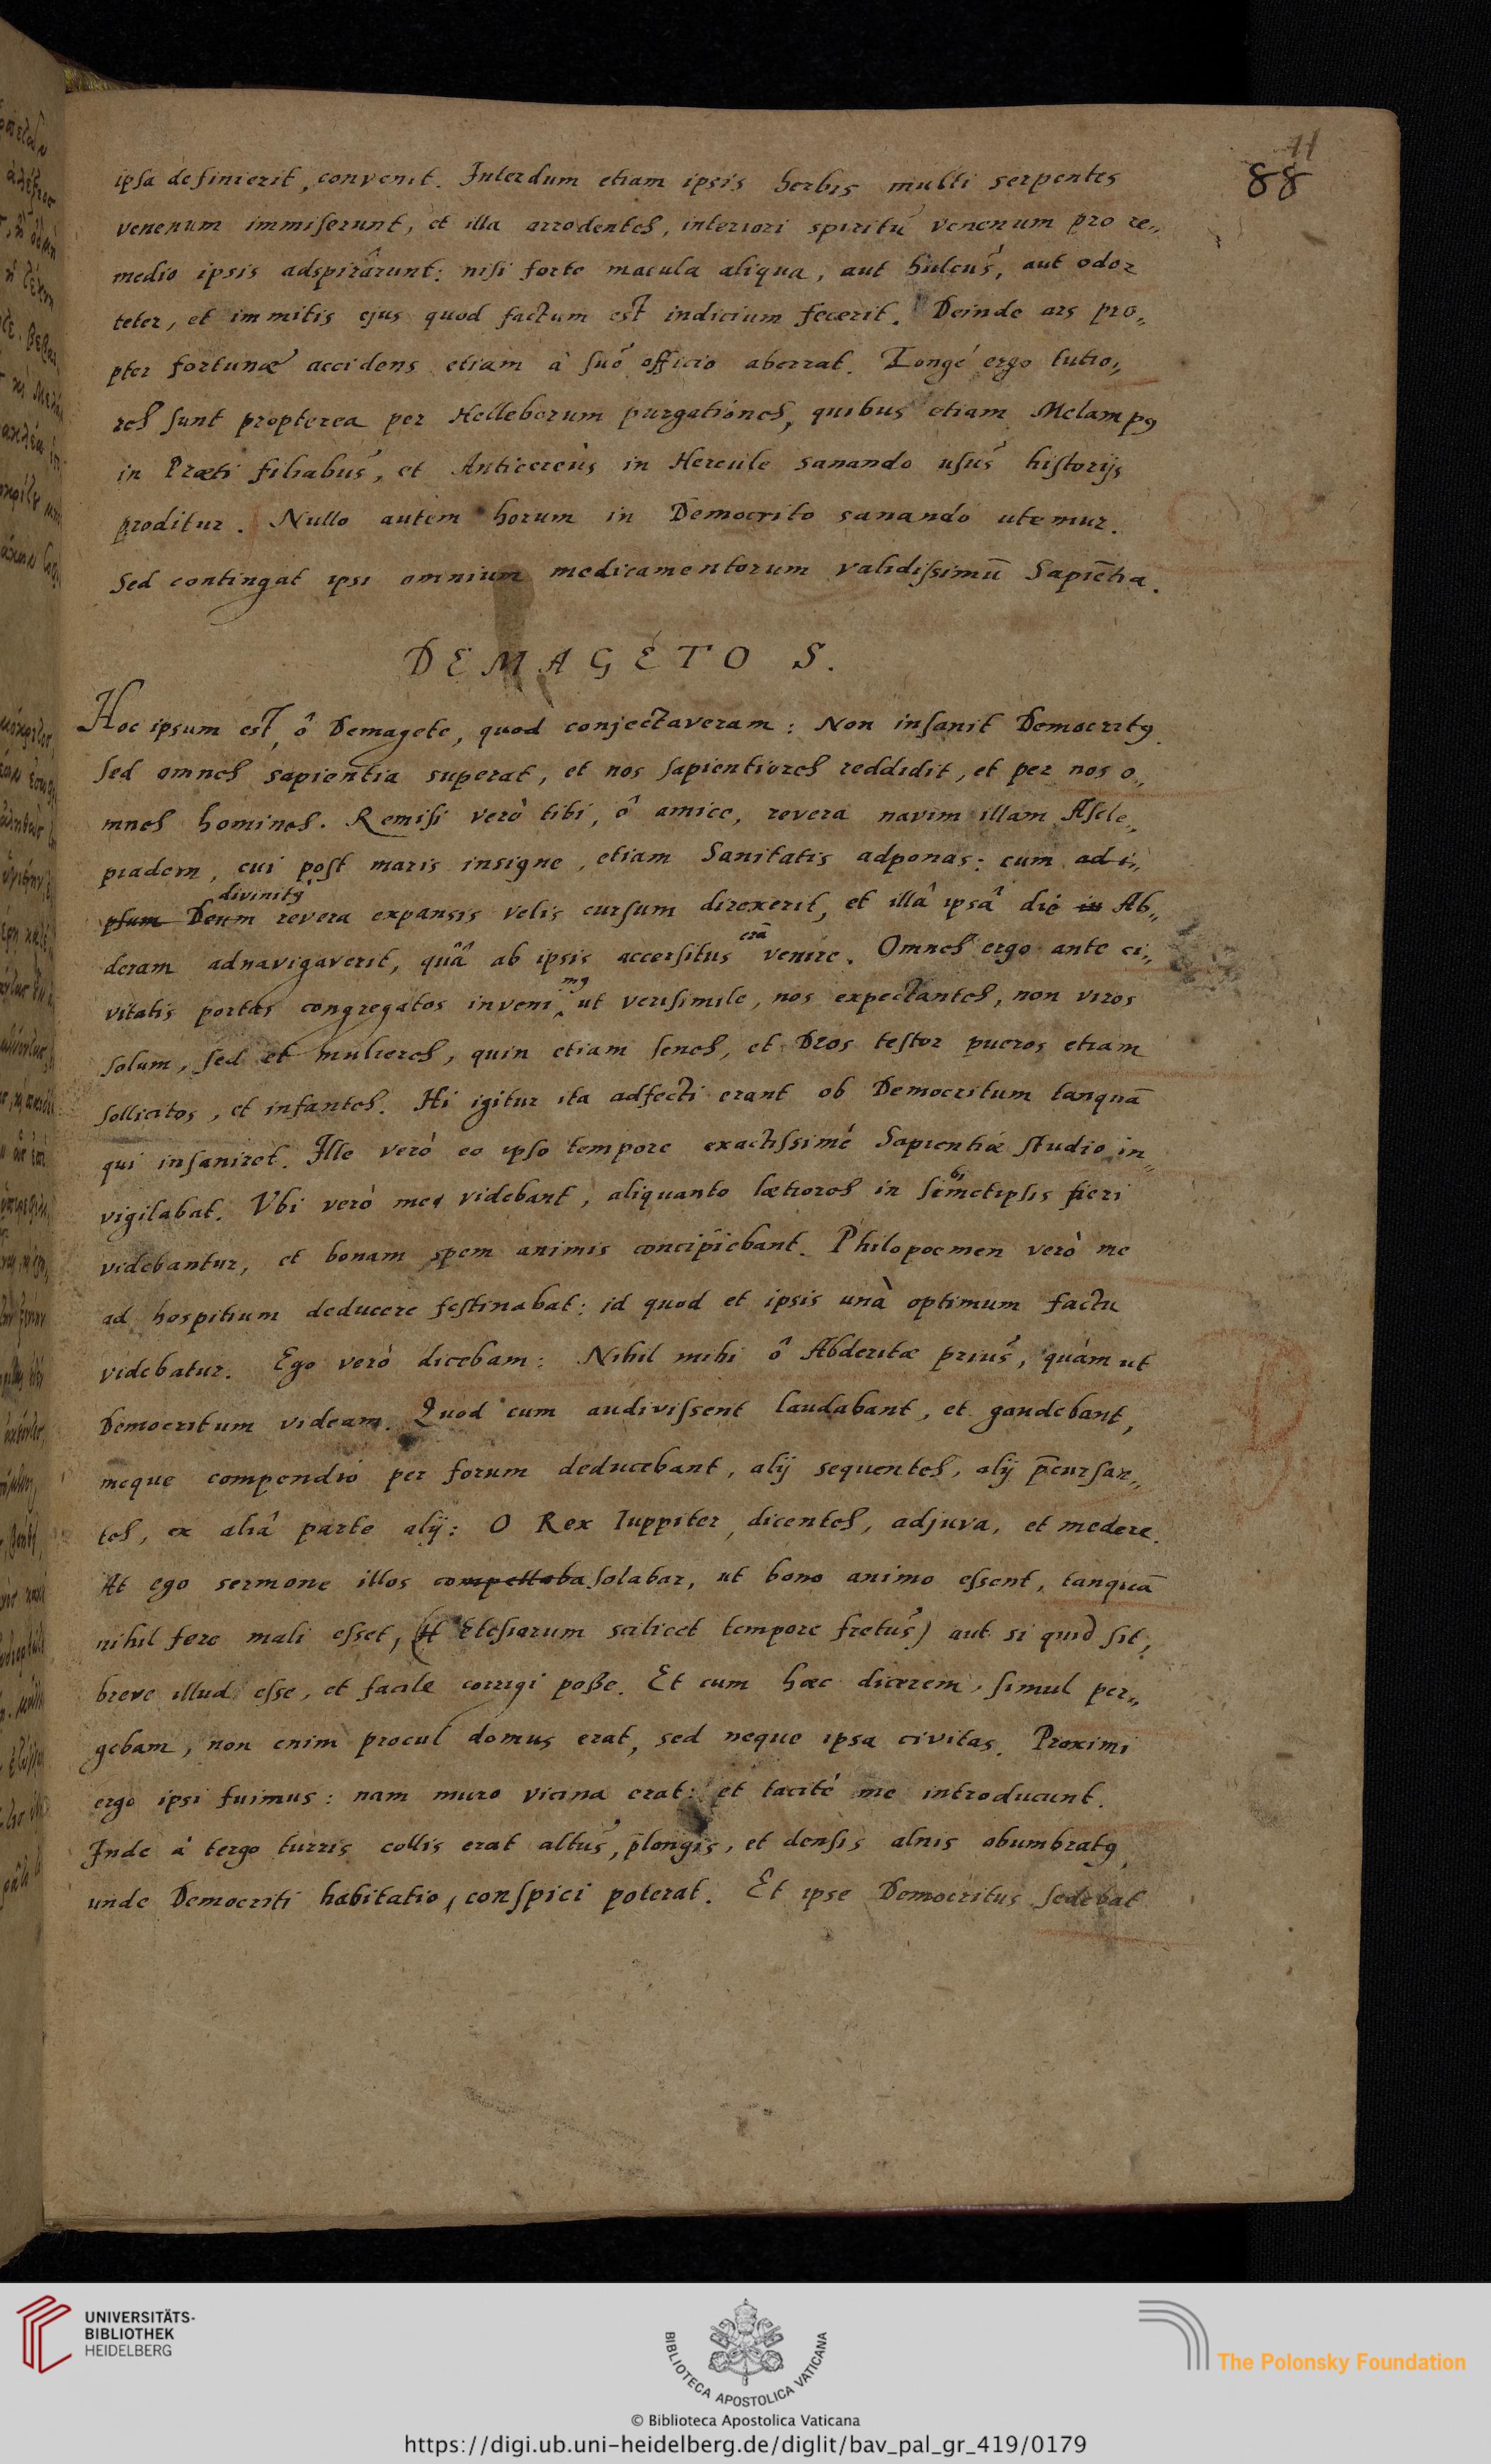 11
88
ipsa definierit, convenit. Interdum etiam ipsis herbis multi serpentes
venenum immiserunt, et illa arrodentes, interiori spiritu venenum pro re„
medio ipsis adspirârunt: nisi forte macula aliqua, aut hulcus, aut odor
teter, et immitis ejus quod factum est indicium fecerit. Deinde ars pro„
pter fortunæ accidens etiam à suo officio aberrat. Longé ergo tutio„
res sunt propterea per Helleborum purgationes, quibus etiam Melampꝰ
in Præti filiabus, et Anticereùs in Hercule sanando usus historijs
proditur. Nullo autem horum in Democrito sanando utemur.
Sed contingat ipsi omnium medicamentorum validissimū Sapiētia.
DEMAGÉTO S.
Hoc ipsum est, ô Demagete, quod conjectaveram: Non insanit Democritꝰ.
sed omnes sapientia superat, et nos sapientiores reddidit, et per nos o„
mnes homines. Remisi verò tibi, ô amice, revera navim illam Ascle„
piadem, cui post maris insigne, etiam Sanitatis adponas: cum ad i„
divinitꝰ
psum Deum revera expansis velis cursum direxerit, et illâ ipsâ die in Ab„
erā
deram adnavigaverit, quâ ab ipsis accersitus venire. Omnes ergo ante ci„
mꝰ
vitatis portas congregatos inveni ut verisimile, nos expectantes, non viros
solum, sed et mulieres, quin etiam senes, et Deos testor pueros etiam
sollicitos, et infantes. Hi igitur ita adfecti erant ob Democritum tanquā
qui insaniret. Ille verò eo ipso tempore exactissimé Sapientiæ studio in„
bi
vigilabat. Vbi verò me videbant, aliquanto lætiores in semetipsis fieri
videbantur, et bonam spem animis concipiebant. Philopoemen verò me
ad hospitium deducere festinabat: id quod et ipsis unà optimum factu
videbatur. Ego verò dicebam: Nihil mihi ô Abderitæ prius, quàm ut
Democritum videam. Quod cum audivissent laudabant, et gaudebant,
meque compendio per forum deducebant, alij sequentes, alij p̄cursan„
tes, ex aliâ parte alij: O Rex Iuppiter, dicentes, adjuva, et medere.
At ego sermone illos compellaba solabar, ut bono animo essent, tanquā
nihil fere mali esset, (Etesiarum scilicet tempore fretus) aut si quid sit,
breve illud esse, et facile corrigi poße. Et cum hæc dicerem, simul per„
gebam, non enim procul domus erat, sed neque ipsa civitas. Proximi
ergo ipsi fuimus: nam muro vicina erat: et tacitè me introducunt.
Inde à tergo turris collis erat altus, p̄longis, et densis alnis obumbratꝰ,
unde Democriti habitatio, conspici poterat. Et ipse Democritus sedebat
UNIVERSITÄTS-
BIBLIOTHEK
HEIDELBERG
BIBLIOTECA APOSTOLICA VATICANA
The Polonsky Foundation
© Biblioteca Apostolica Vaticana
https://digi.ub.uni-heidelberg.de/diglit/bav_pal_gr_419/0179